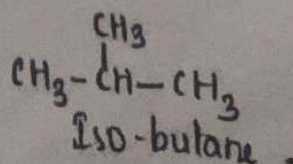 CH3
CH3-CH-CH3
Iso-butane